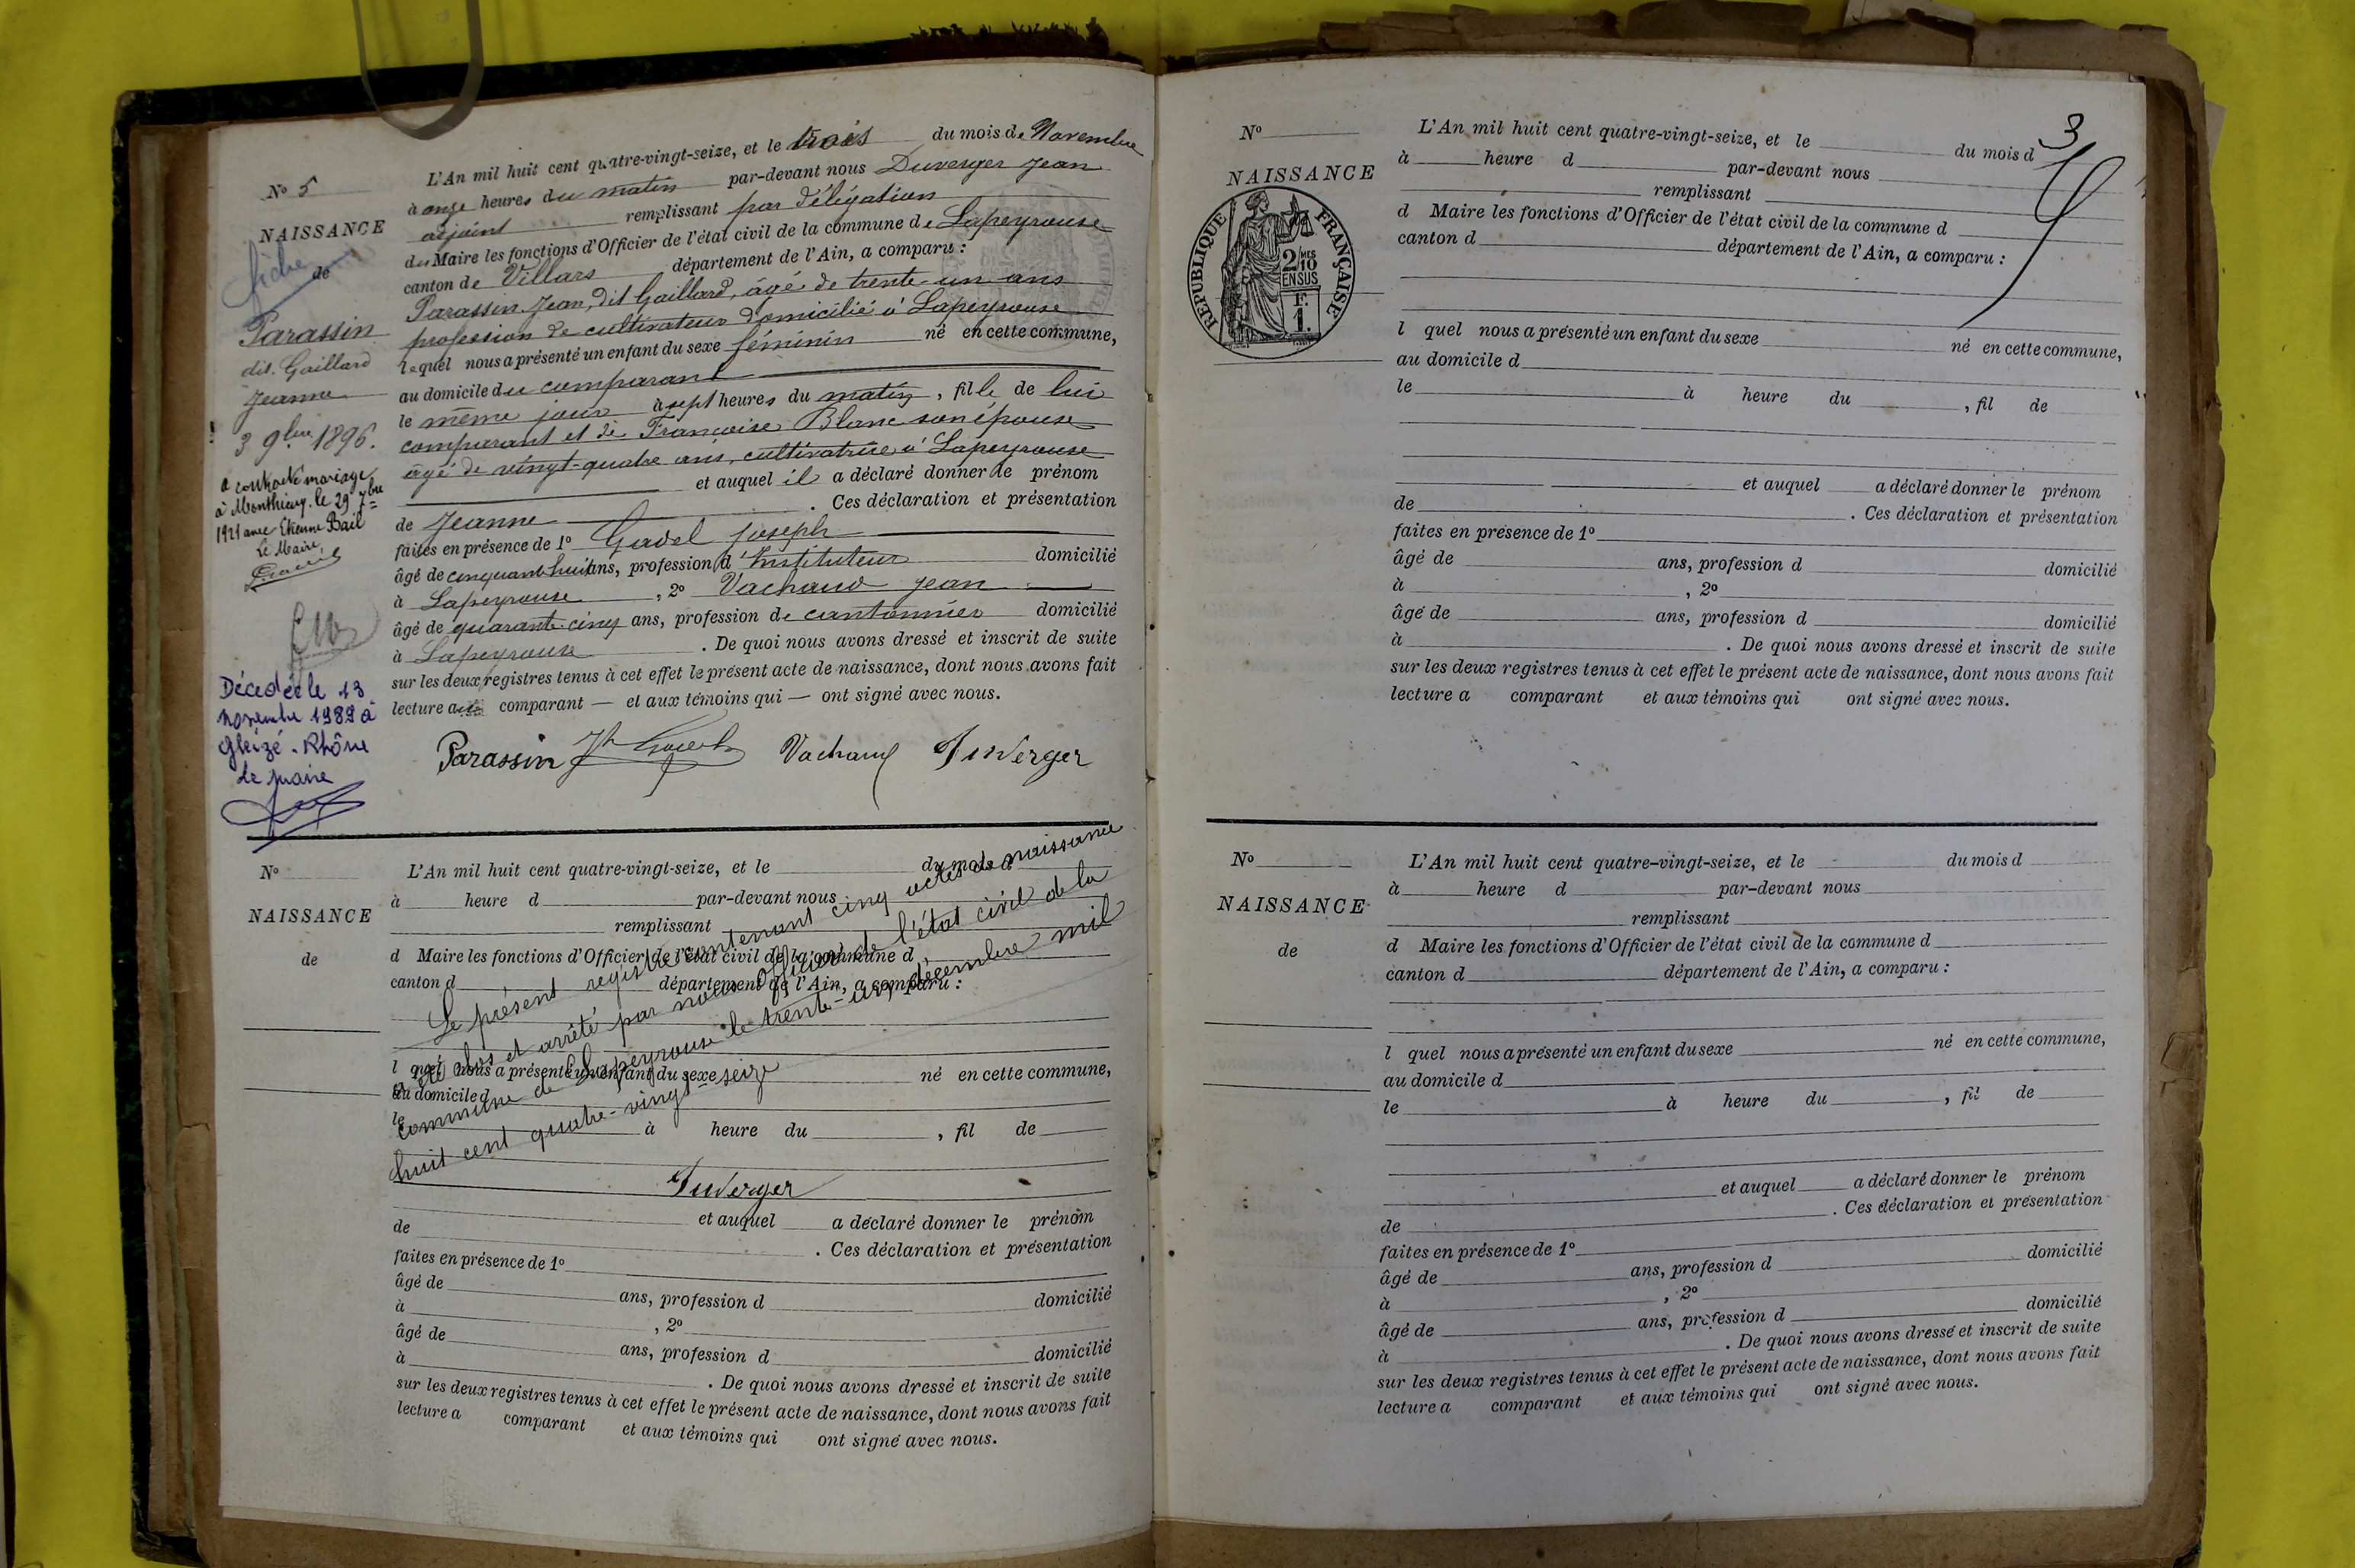 N° 5
NAISSANCE
fiche
de
Parassin
dit Gaillard
Jeanne
3 9bre 1896.
a contracté mariage
à Monthieux le 29 7bre
1921 avec Etienne Bail
Le Maire
Décédée le 13
novembre 1989 à
Gleizé - Rhône
Le maire
L'An mil huit cent quatre-vingt-seize, et le trois du mois de Novembre
à onze heures du matin par-devant nous Duverger Jean
adjoint remplissant par délégation
du Maire les fonctions d'Officier de l'état civil de la commune de Lapeyrouse
canton de Villars département de l'Ain, a comparu :
Parassin Jean, dit Gaillard, âgé de trente-un ans
profession de cultivateur domicilié à Lapeyrouse
lequel nous a présenté un enfant du sexe féminin né en cette commune,
au domicile du comparant
le même jour à sept heures du matin, fille de lui
comparant et de Françoise Blanc son épouse
âgé de vingt-quatre ans, cultivatrice à Lapeyrouse
et auquel il a déclaré donner le prénom
de Jeanne . Ces déclaration et présentation
faites en présence de 1° Gavel Joseph
âgé de cinquante huit ans, profession d'Instituteur domicilié
à Lapeyrouse , 2° Vachaud Jean
âgé de quarante cinq ans, profession de cantonnier domicilié
à Lapeyrouse . De quoi nous avons dressé et inscrit de suite
sur les deux registres tenus à cet effet le présent acte de naissance, dont nous avons fait
lecture au comparant — et aux témoins qui — ont signé avec nous.
Parassin Vachaud Duverger
N°
NAISSANCE
de
L'An mil huit cent quatre-vingt-seize, et le du mois d
à heure d par-devant nous
remplissant
d Maire les fonctions d'Officier de l'état civil de la commune d
canton d département de l'Ain, a comparu :
l quel nous a présenté un enfant du sexe né en cette commune,
au domicile d
le à heure du , fil de
Le présent registre contenant cinq actes de naissance
a été clos et arrêté par nous Officier de l'état civil de la
commune de Lapeyrouse le trente-un décembre mil
huit cent quatre-vingt-seize
Duverger
et auquel a déclaré donner le prénom
de . Ces déclaration et présentation
faites en présence de 1°
âgé de ans, profession d domicilié
à , 2°
âgé de ans, profession d domicilié
à . De quoi nous avons dressé et inscrit de suite
sur les deux registres tenus à cet effet le présent acte de naissance, dont nous avons fait
lecture a comparant et aux témoins qui ont signé avec nous.
3
N°
NAISSANCE
RÉPUBLIQUE FRANÇAISE
2 MES
10
EN SUS
F.
1.
L'An mil huit cent quatre-vingt-seize, et le du mois d
à heure d par-devant nous
remplissant
d Maire les fonctions d'Officier de l'état civil de la commune d
canton d département de l'Ain, a comparu :
l quel nous a présenté un enfant du sexe né en cette commune,
au domicile d
le à heure du , fil de
et auquel a déclaré donner le prénom
de . Ces déclaration et présentation
faites en présence de 1°
âgé de ans, profession d domicilié
à , 2°
âgé de ans, profession d domicilié
à . De quoi nous avons dressé et inscrit de suite
sur les deux registres tenus à cet effet le présent acte de naissance, dont nous avons fait
lecture a comparant et aux témoins qui ont signé avec nous.
N°
NAISSANCE
de
L'An mil huit cent quatre-vingt-seize, et le du mois d
à heure d par-devant nous
remplissant
d Maire les fonctions d'Officier de l'état civil de la commune d
canton d département de l'Ain, a comparu :
l quel nous a présenté un enfant du sexe né en cette commune,
au domicile d
le à heure du , fil de
et auquel a déclaré donner le prénom
de . Ces déclaration et présentation
faites en présence de 1°
âgé de ans, profession d domicilié
à , 2°
âgé de ans, profession d domicilié
à . De quoi nous avons dressé et inscrit de suite
sur les deux registres tenus à cet effet le présent acte de naissance, dont nous avons fait
lecture a comparant et aux témoins qui ont signé avec nous.